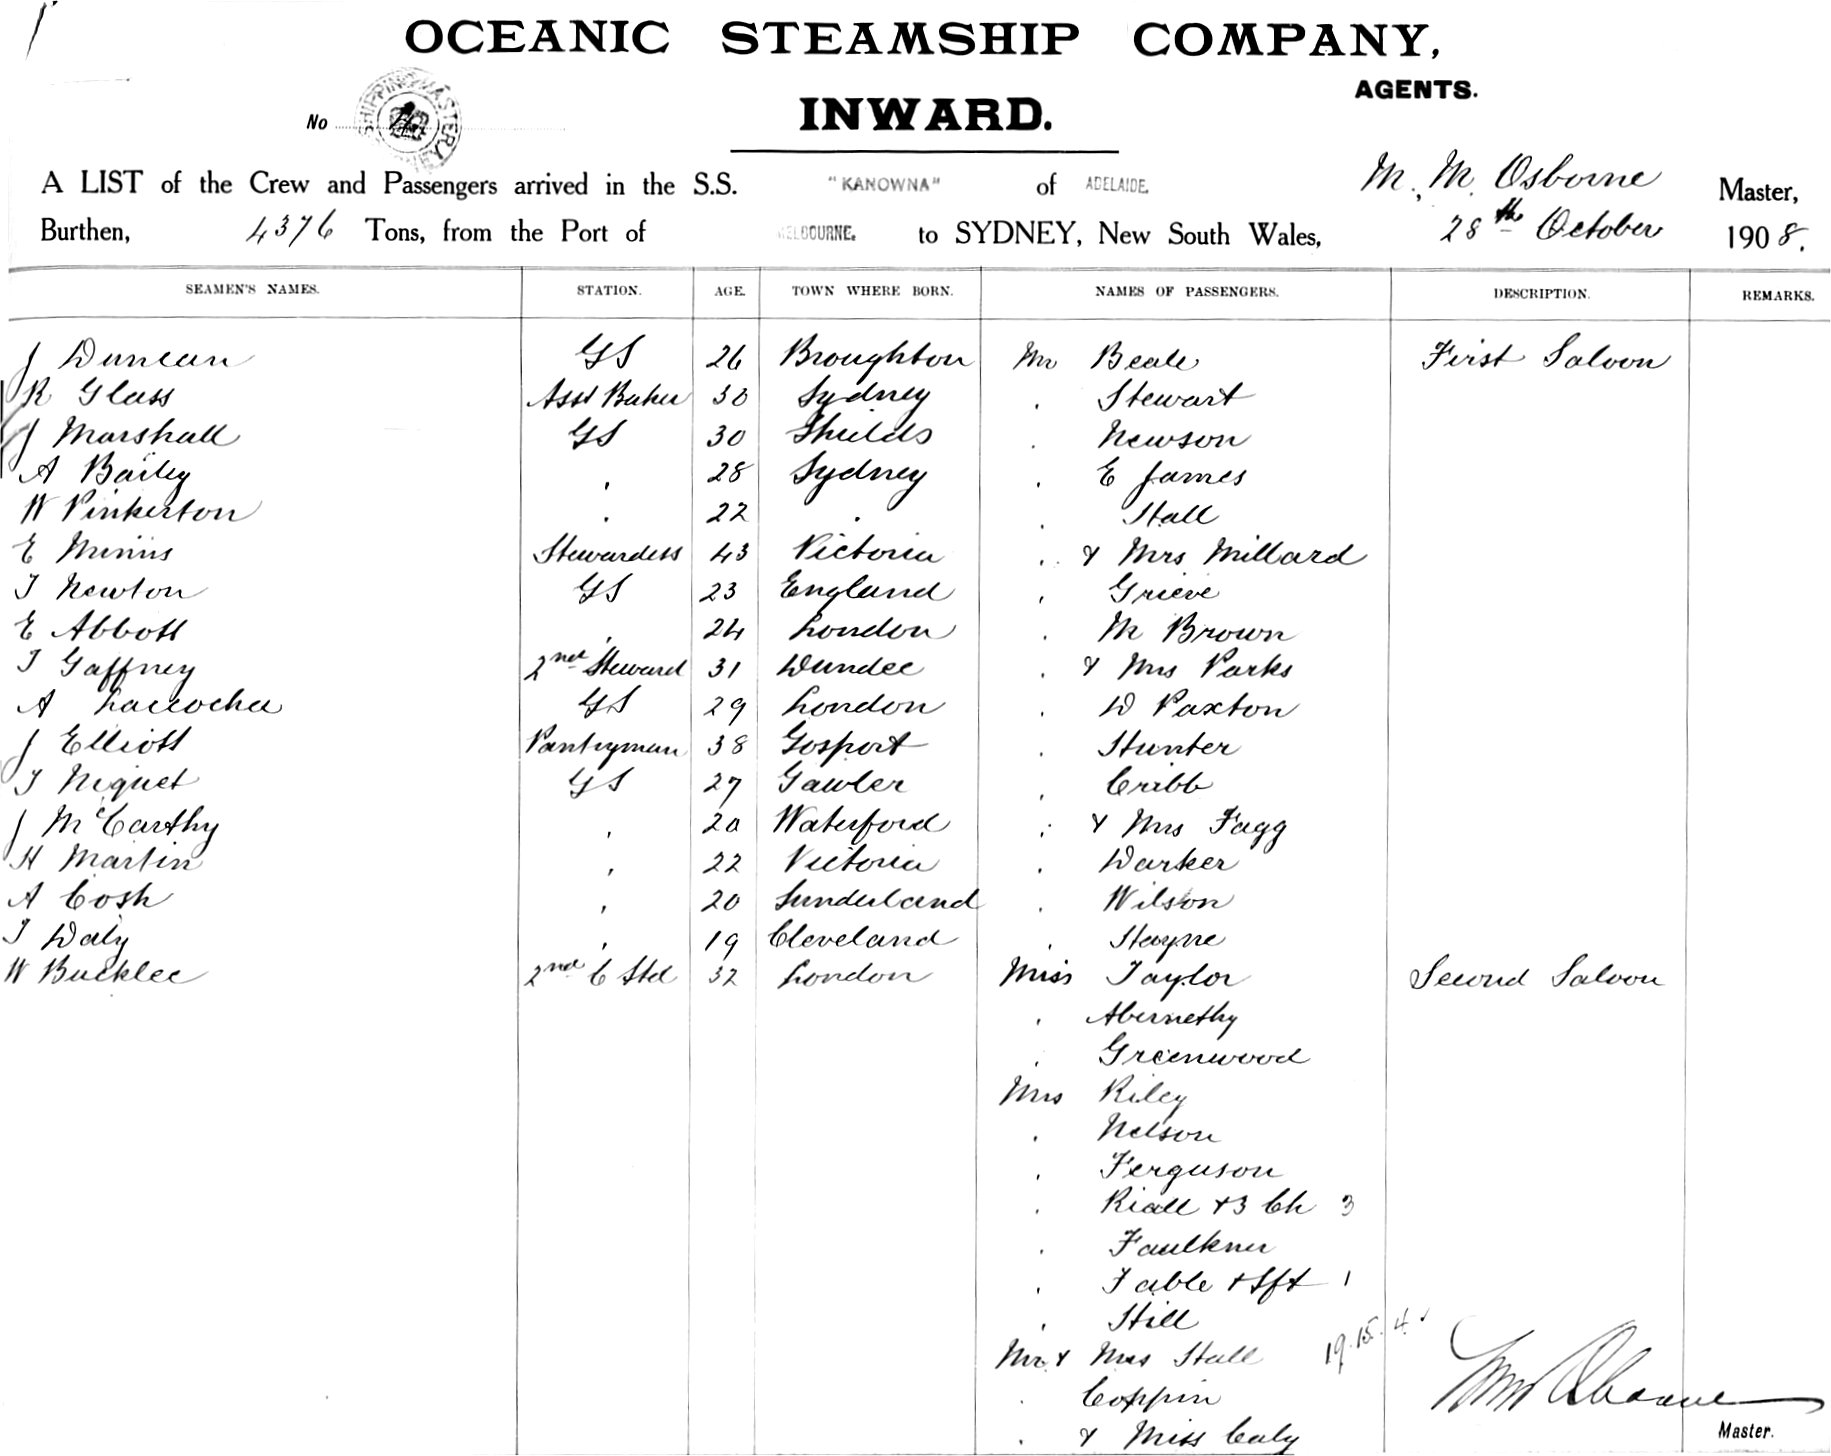 OCEANIC STEAMSHIP COMPANY,
AGENTS.
INWARD.
No
A LIST of the Crew and Passengers arrived in the S.S. "KANOWNA" of ADELAIDE. M. M. Osborne Master,
Burthen, 4376 Tons, from the Port of MELBOURNE. to SYDNEY, New South Wales, 28th October 1908.
SEAMEN'S NAMES. STATION. AGE. TOWN WHERE BORN. NAMES OF PASSENGERS. DESCRIPTION. REMARKS.
J Duncan GS 26 Broughton Mr Beale First Saloon
R Glass Asst Baker 30 Sydney . Stewart
J Marshall GS 30 Shields . Newson
A Bailey . 28 Sydney . E James
W Pinkerton . 22 . . Hall
E Stewardess 43 Victoria . & Mrs Millard
T Newton GS 23 England . Grieve
E Abbott . 24 London . M Brown
T Gaffney 2nd Steward 31 Dundee . & Mrs Parks
A GS 29 London . D Paxton
J Elliott Pantryman 38 Gosport . Hunter
T Niquet GS 27 Gawler . Cribb
J McCarthy . 20 Waterford . & Mrs Fagg
H Martin . 22 Victoria . Darker
A Cosh . 20 Sunderland . Wilson
T Daly . 19 Cleveland . Hayne
W Bucklee 2nd C Std 32 London Miss Taylor Second Saloon
. Abernethy
. Greenwood
Mrs Riley
. Nelson
. Ferguson
. Riall & 3 Ch 3
. Faulkner
. Fable & Inft 1
. Hill
Mr & Mrs Hall 19.15.4
. Coppin
. & Miss Caly
Master.